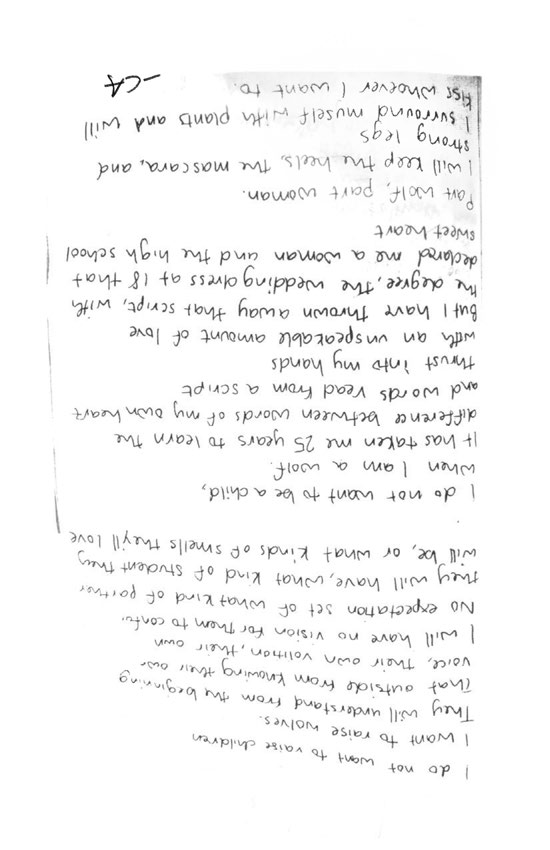 I do not want to raise children
I want to raise wolves.
They will understand from the beginning
that outside from knowing their own
voice, their own volition, their own
I will have no vision for them to
No expectation set of what kind of partner
they will have, what kind of student they
will be, or what kinds of smells they'll love
I do not want to be a child,
when I am a wolf.
It has taken me 25 years to learn the
difference between words of my own heart
and words read from a script
thrust into my hands
with an unspeakable amount of love
But I have thrown away that script, with
the degree, the wedding dress at 18 that
declared me a woman and the high school
sweet heart
Part wolf, part woman.
I will keep the heels, the mascara, and
strong legs
I surround myself with plants and will
kiss whoever I want to.
-CA